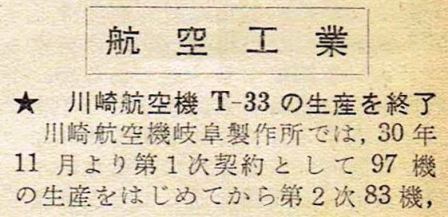 航空工業
★ 川崎航空機 T-33 の生産を終了
川崎航空機岐阜製作所では, 30年
11月より第1次契約として 97 機
の生産をはじめてから第2次83機,